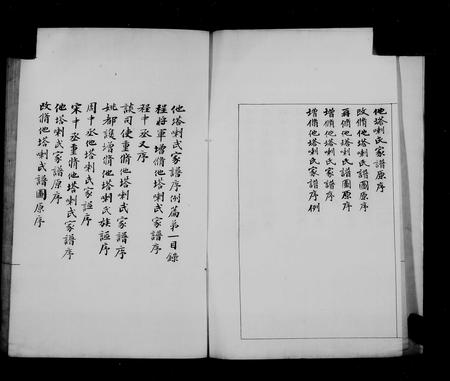 他塔喇氏家譜原序
改脩他塔喇氏譜圖原序
再脩他塔喇氏譜圖原序
增脩他塔喇氏家譜序
增脩他塔喇氏家譜序例
他塔喇氏家譜序例篇第一目錄
程將軍增脩他塔喇氏家譜序
程中丞又序
談司使重脩他塔喇氏家譜序
姚都護增脩他塔喇氏族譜序
周中丞他塔喇氏家譜序
宋中丞重脩他塔喇氏家譜序
他塔喇氏家譜原序
改脩他塔喇氏譜圖原序